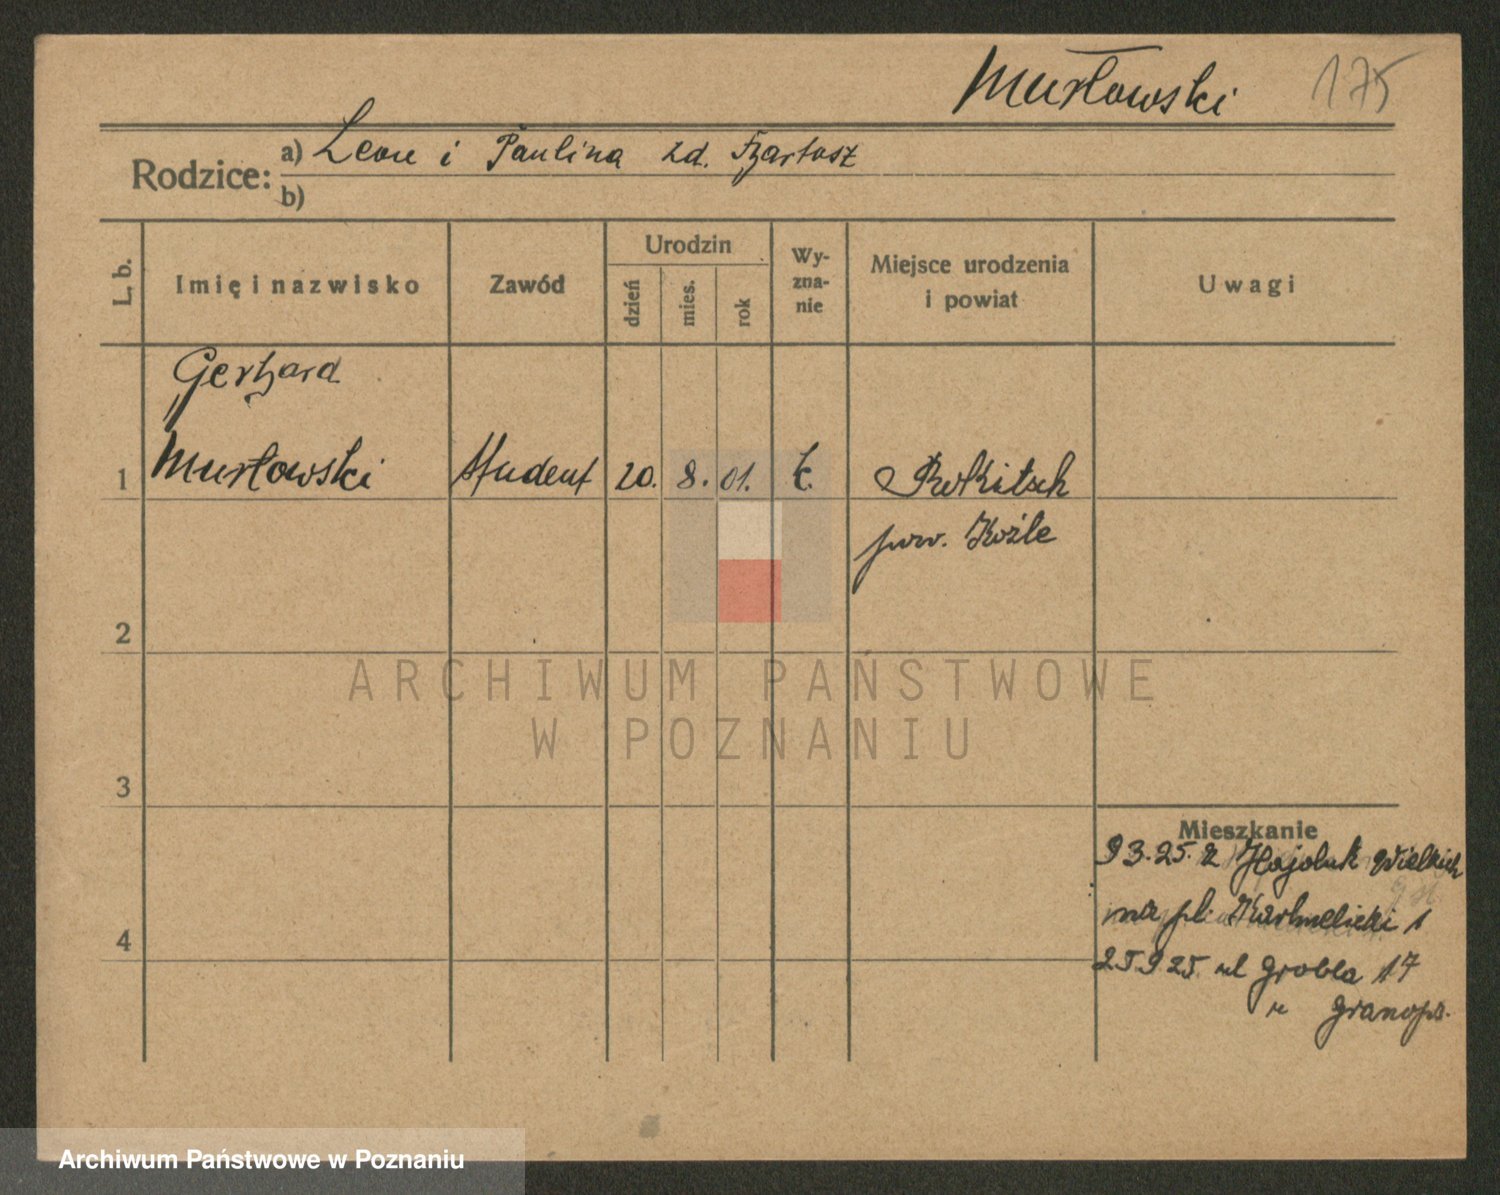 Murłowski 175
Rodzice: a) Leon i Paulina zd.
b)
L. b. Imię i nazwisko Zawód Urodzin dzień mies. rok Wyznanie Miejsce urodzenia i powiat Uwagi
Gerhard
1 Murłowski Student 20. 8. 01. k. Rokitsch
pow. Koźle
2
ARCHIWUM PAŃSTWOWE
W POZNANIU
3
Mieszkanie
9 3.25. z Hajduk Wielkich
4 na pl. Karmelicki 1
25 9 25. ul Grobla 17
u
Archiwum Państwowe w Poznaniu